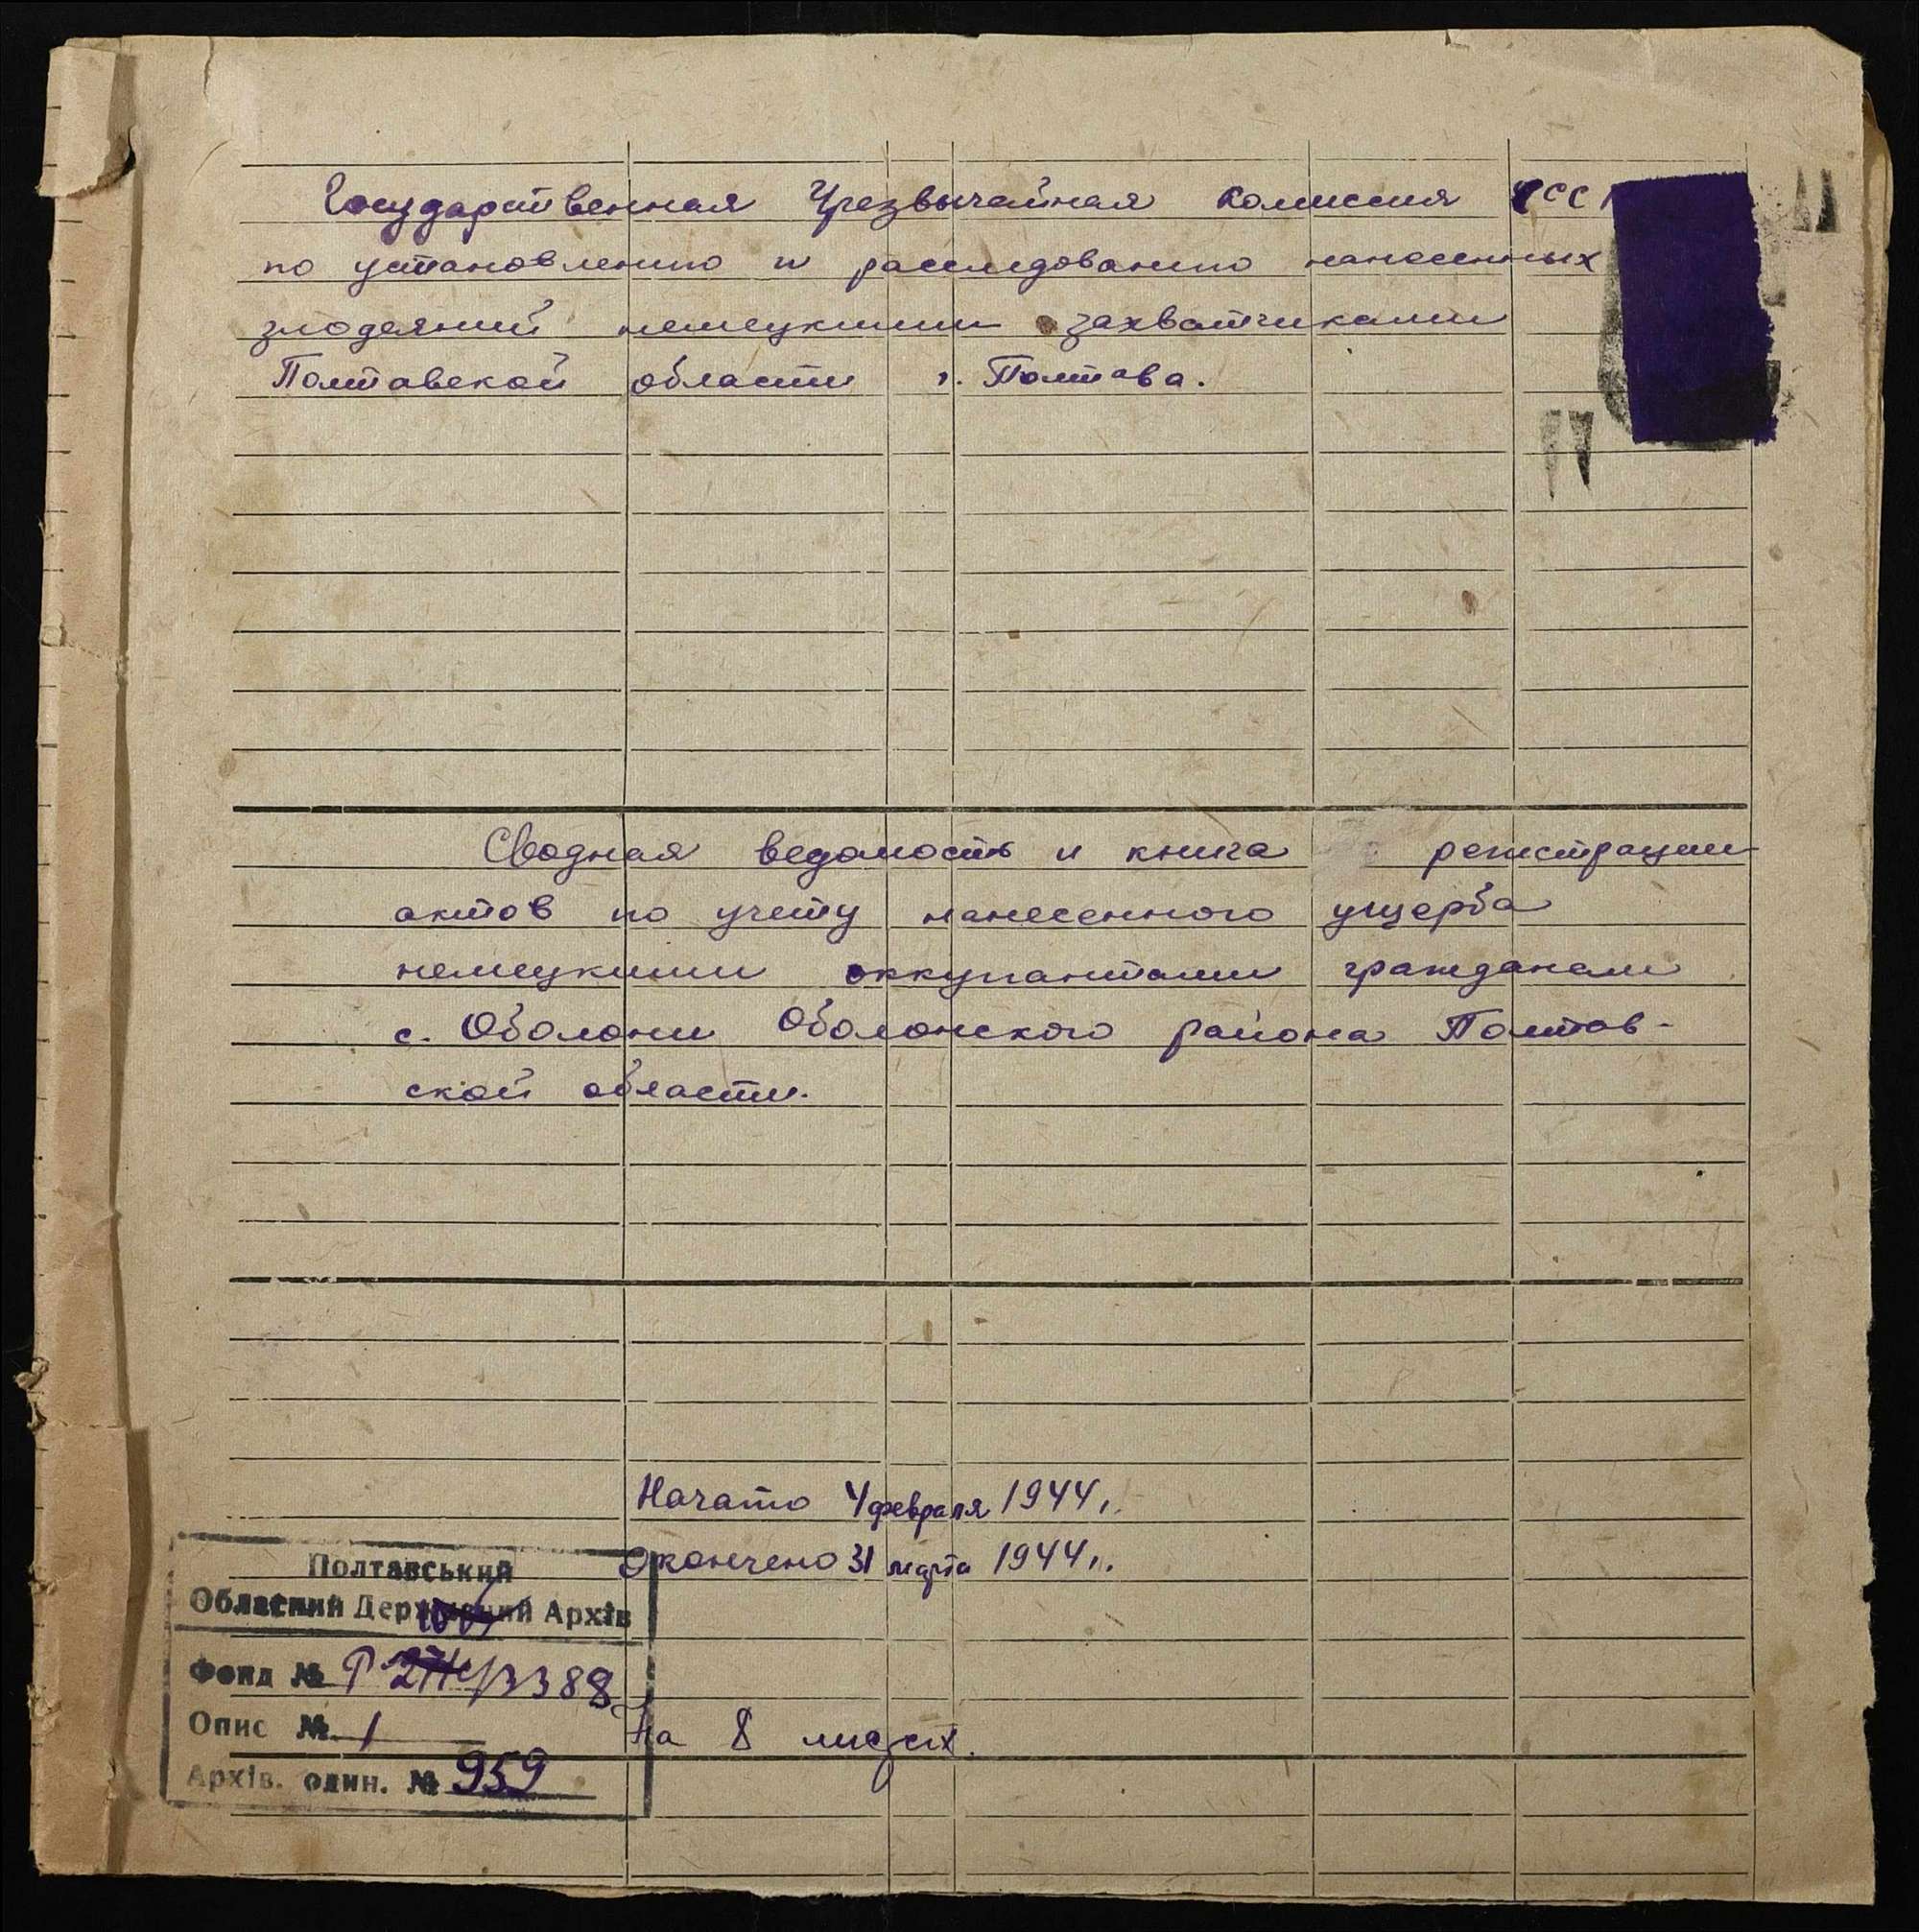 Государственная Чрезвычайная Комиссия
по установлению и расследованию нанесенных
злодеяний немецкими захватчиками
Полтавской области г. Полтава.
Сводная ведомость и книга регистрации
актов по учету нанесенного ущерба
немецкими оккупантами гражданам
с. Оболони Оболонского района Полтав-
ской области.
Начато 4 февраля 1944 г.
Окончено 31 марта 1944 г.
Полтавський
Обласний Державний Архів
Фонд № Р 3388
Опис № 1
На 8 листах.
Архів. один. № 959